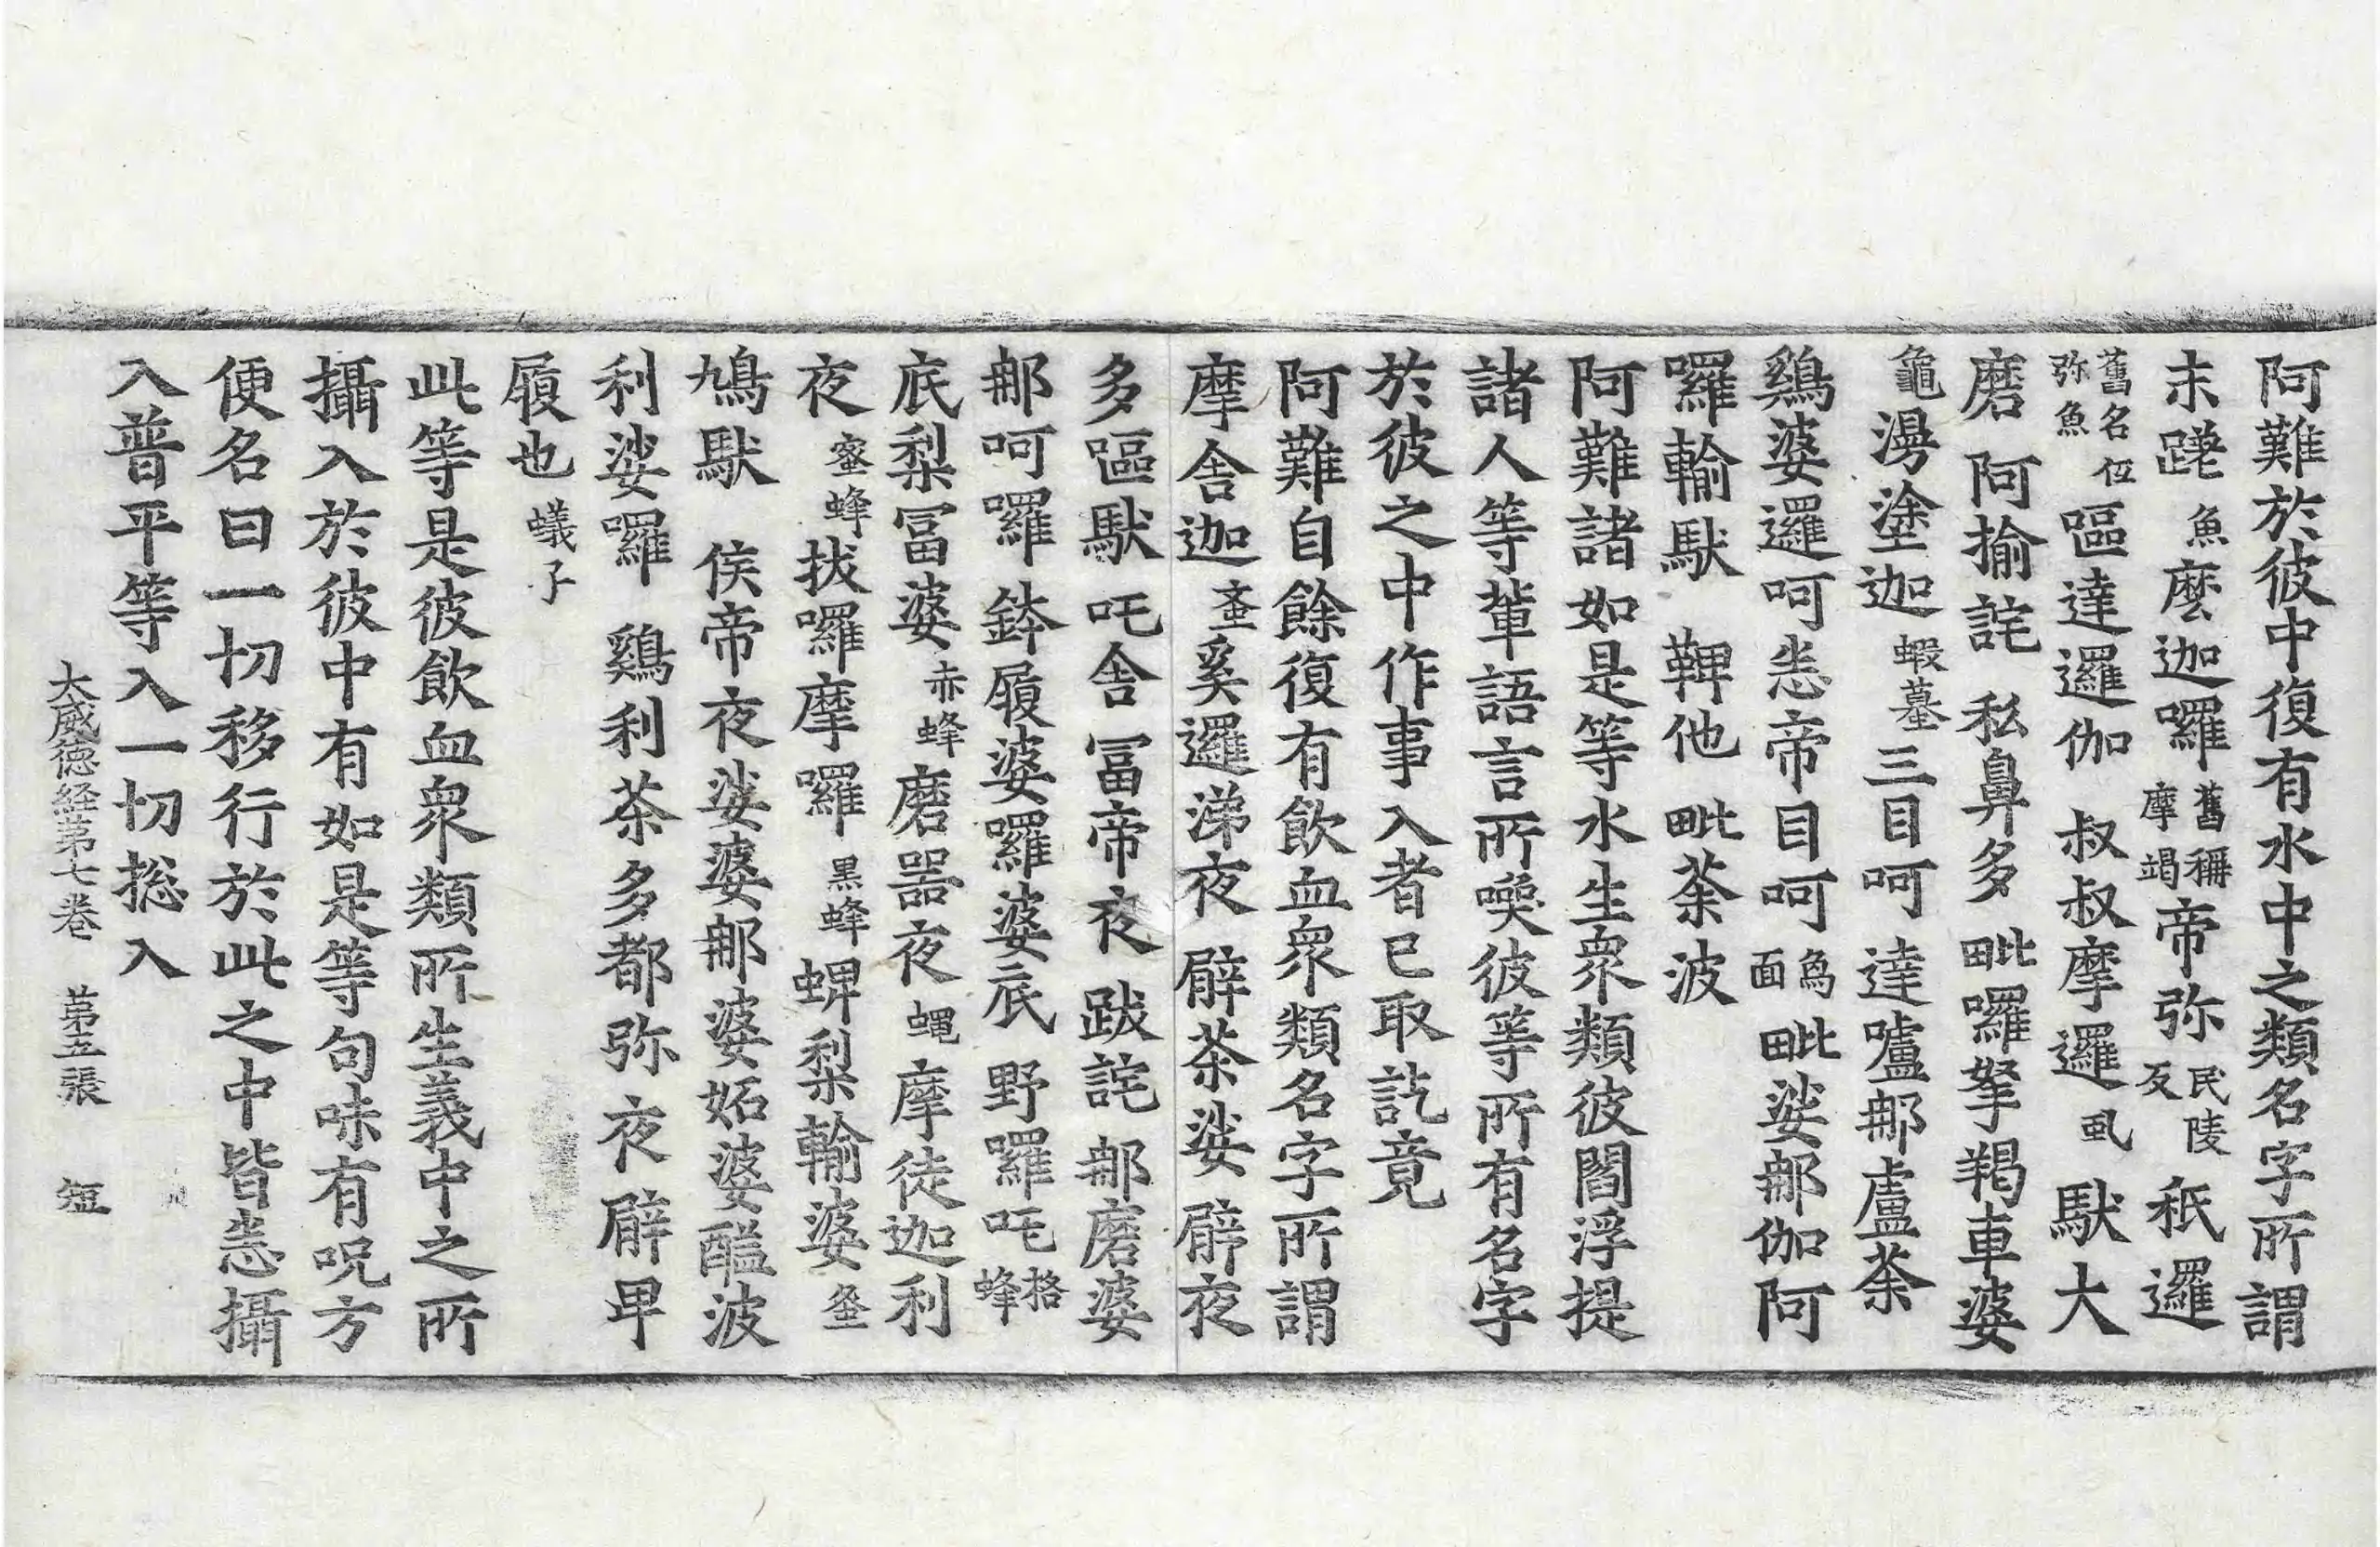 阿難於彼中復有水中之類名字所謂
末蹉魚麼迦囉舊稱摩竭帝弥民陵反秖邏
舊名伍弥魚嘔達邏伽叔叔摩邏虬馱大
磨阿揄詫私鼻多毗囉拏羯車婆
龜漫塗迦蝦蟇三目呵達嚧那盧荼
鷄婆邏呵恙帝目呵為面毗娑那伽阿
囉輸馱鞞他毗荼波
阿難諸如是等水生衆類彼閻浮提
諸人等輩語言所喚彼等所有名字
於彼之中作事入者已取訖竟
阿難自餘復有飲血衆類名字所謂
摩舍迦奚邏涕夜䏶荼娑䏶夜
多嘔馱吒舍冨帝夜跋詫那磨婆
那呵囉鉢履婆囉婆底野囉吒格蜂
底梨冨婆赤蜂磨噐夜蠅摩徒迦利
夜蜜蜂拔囉摩囉黒蜂蜱梨輸婆
鳩馱侯帝夜娑婆那婆妬婆醯波
利娑囉鷄利荼多都弥夜䏶甲
履也蟻子
此等是彼飲血衆類所生義中之所
攝入於彼中有如是等句味有呪方
便名曰一切移行於此之中皆悉攝
入普平等入一切捴入
大威德経第七卷 第五張 短